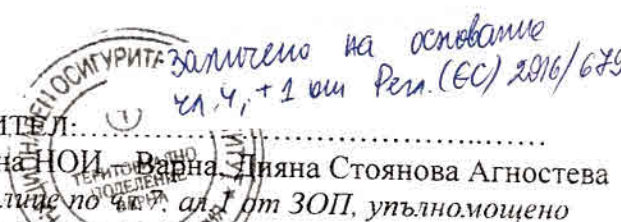 заличено на основание
чл. 4, т 1 от Регл. (ЕС) 2016/679
ИТЕЛ:
на НОИ – Варна, Дияна Стоянова Агностева
лице по чл. 7, ал. 1 от ЗОП, упълномощено
ТЕРИТОРИАЛНО
ПОДЕЛЕНИЕ
ВАРНА